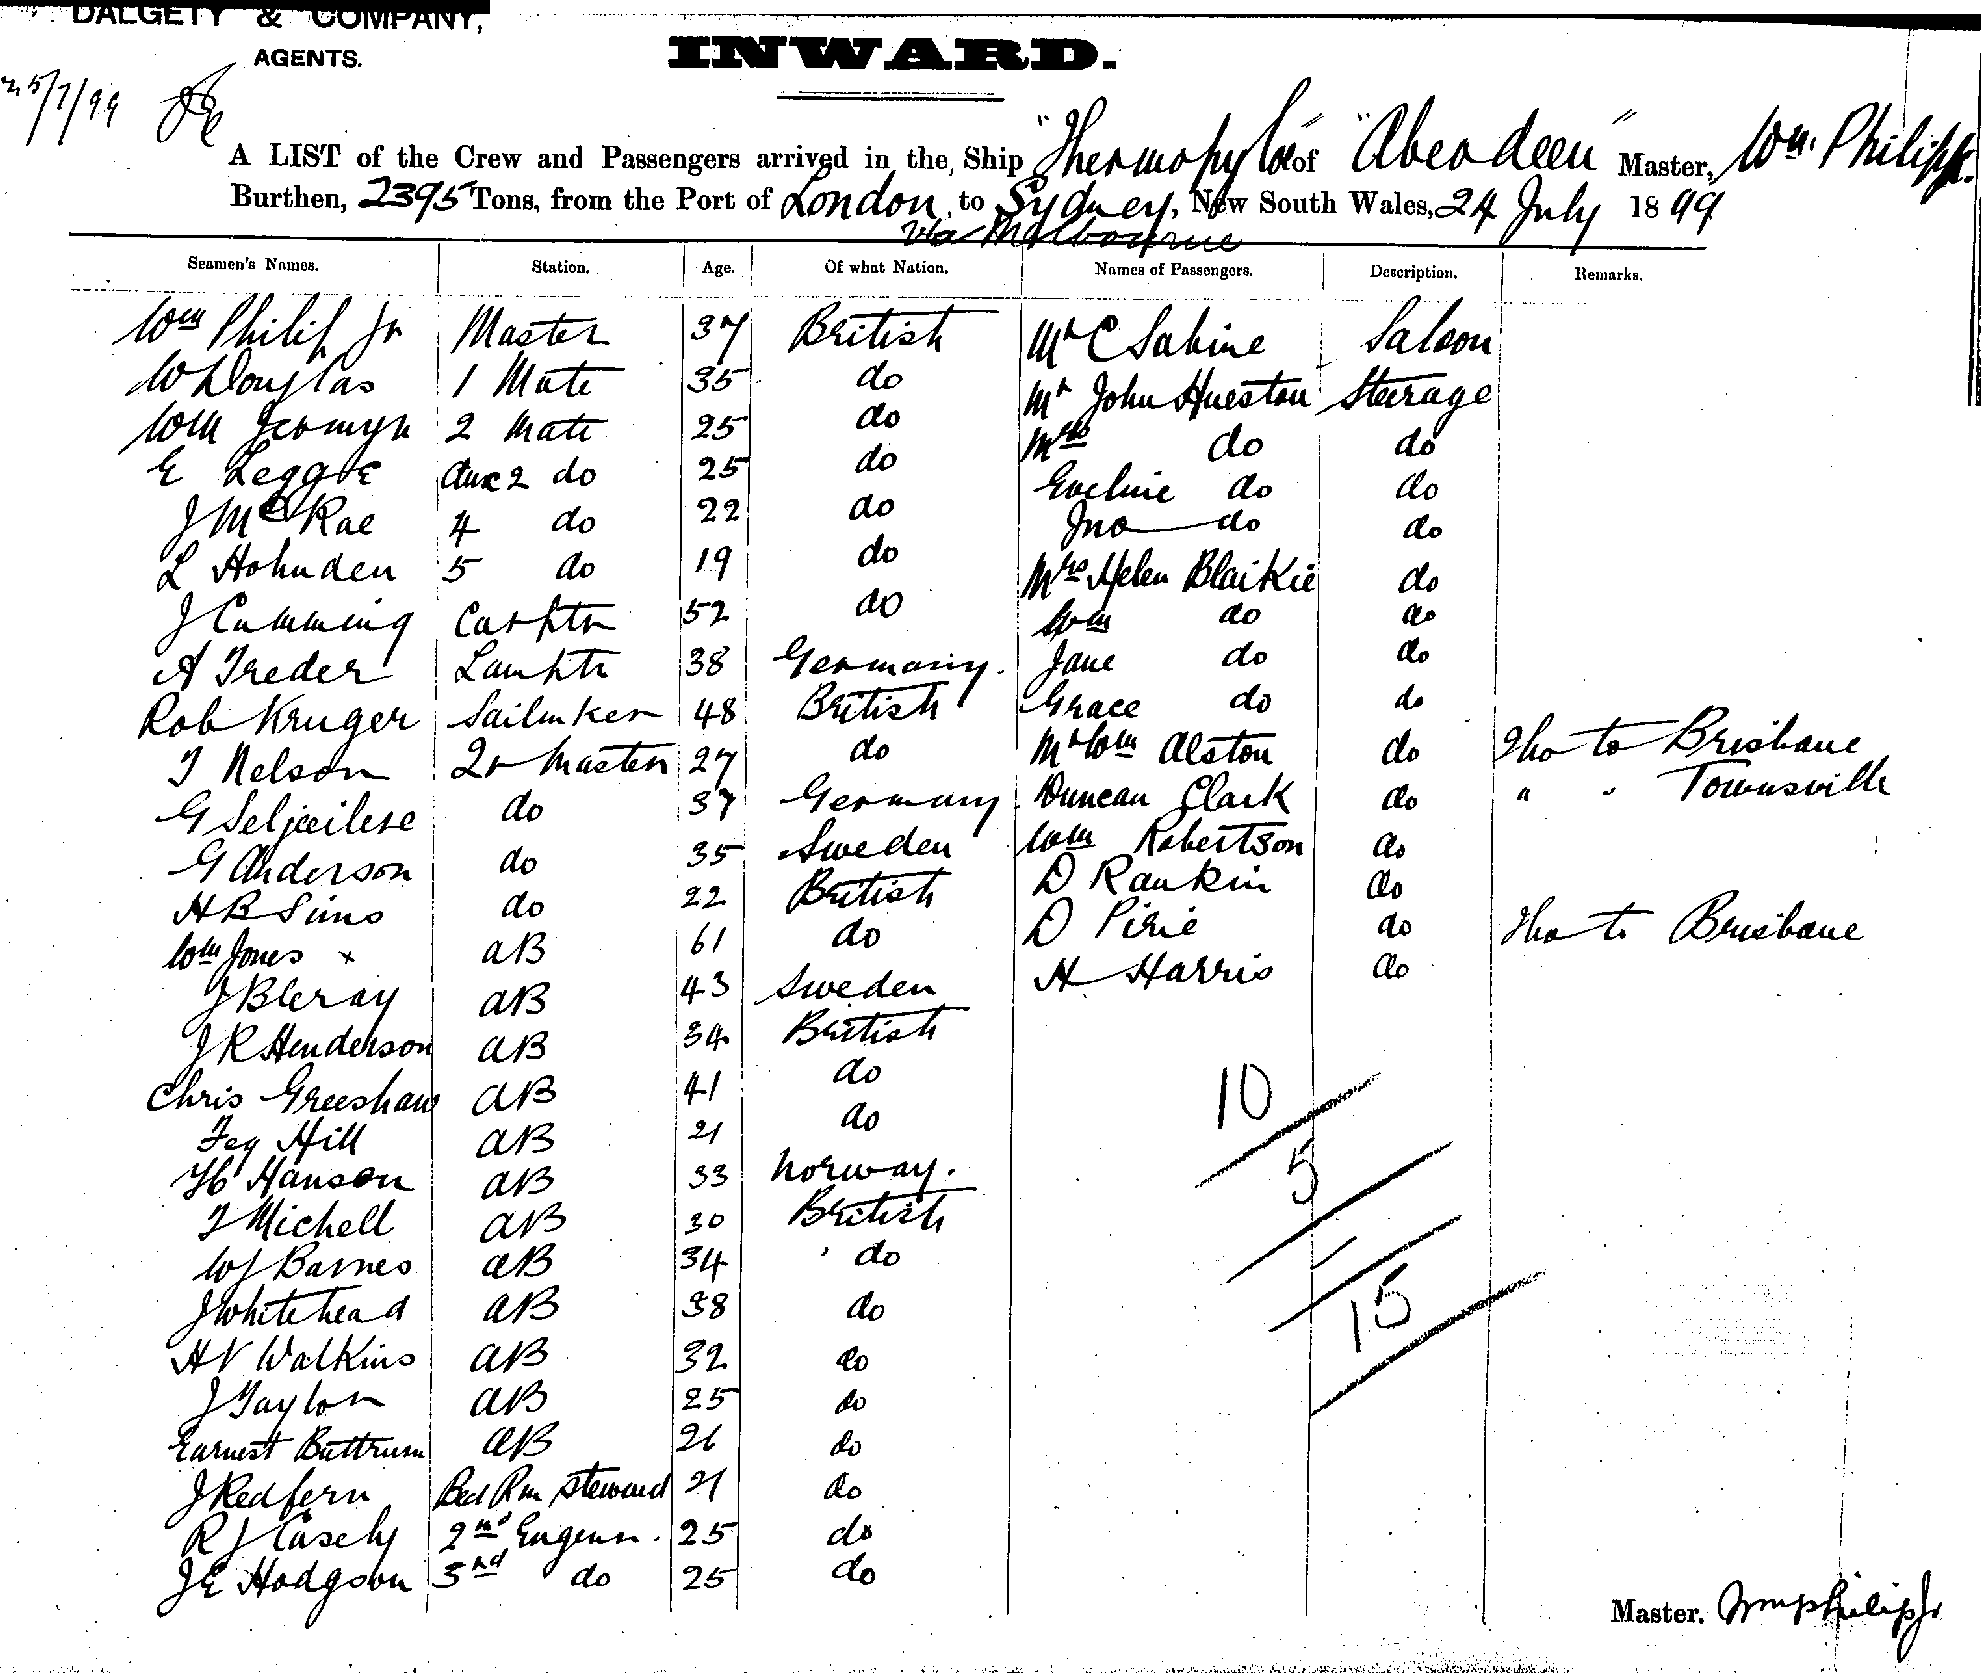 DALGETY & COMPANY,
AGENTS.
INWARD.
25/7/99
A LIST of the Crew and Passengers arrived in the Ship "Thermopylæ" of "Aberdeen" Master, Wm. Philip Jr.
Burthen, 2395 Tons, from the Port of London to Sydney, New South Wales, 24 July 1899
via Melbourne
Seamen's Names. Station. Age. Of what Nation. Names of Passengers. Description. Remarks.
Wm Philip Jr Master 37 British Mr C Sabine Saloon
W Douglas 1 Mate 35 do Mr John Hueston Steerage
Wm Jermyn 2 Mate 25 do Mrs do do
E Leggoe Aux 2 do 25 do Eveline do do
J McRae 4 do 22 do Jno do do
L Hohnden 5 do 19 do Mrs Helen Blaikie do
J Cumming Carptr 52 do Wm do do
A Treder Lamptr 38 Germany. Jane do do
Rob Kruger Sailmker 48 British Grace do do
T Nelson Qr Master 27 do Mr Wm Alston do Thro to Brisbane
G do 37 Germany Duncan Clark do " " Townsville
G Anderson do 35 Sweden Wm Robertson do
H B Sims do 22 British D Rankin do
Wm Jones x AB 61 do D Pirie do Thro to Brisbane
J Bleray AB 43 Sweden H Harris do
J R Henderson AB 34 British
Chris Greeshaw AB 41 do
Feg Hill AB 21 do
H Hanson AB 33 Norway.
T Michell AB 30 British
WJ Barnes AB 34 do
J Whitehead AB 38 do
HV Walkins AB 32 do
J Taylor AB 25 do
Earnest Buttrum AB 26 do
J Redfern Bed Rm Steward 21 do
R J Casely 2nd Engeenr. 25 do
J E Hodgson 3rd do 25 do
10
5
15
Master. Wm Philip Jr